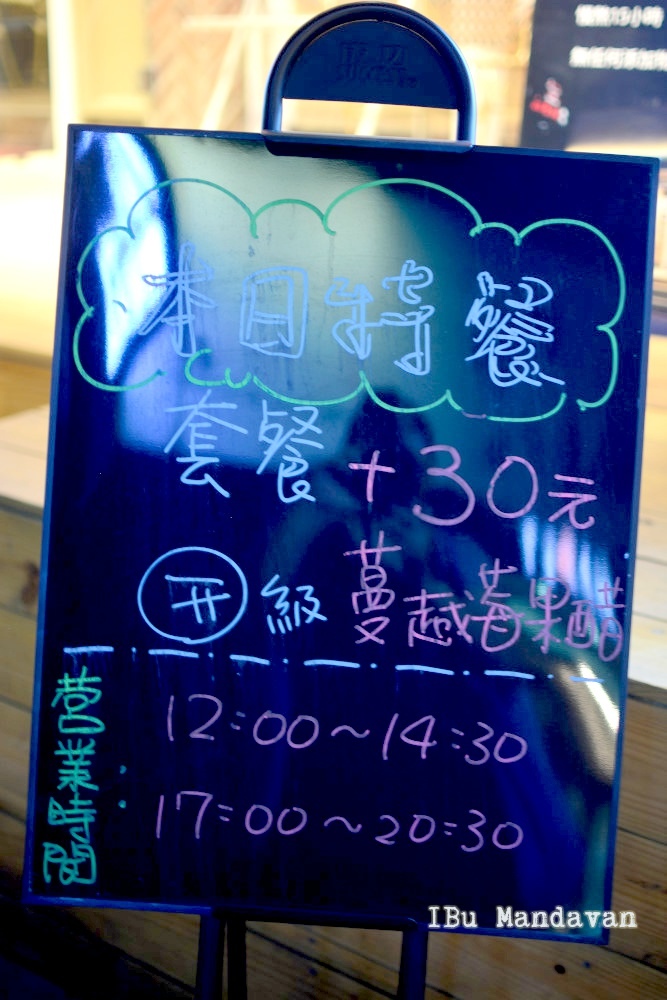 本日特餐
套餐+30元
升級 蔓越莓果醋
營業時間:
12:00~14:30
17:00~20:30
IBu Mandavan